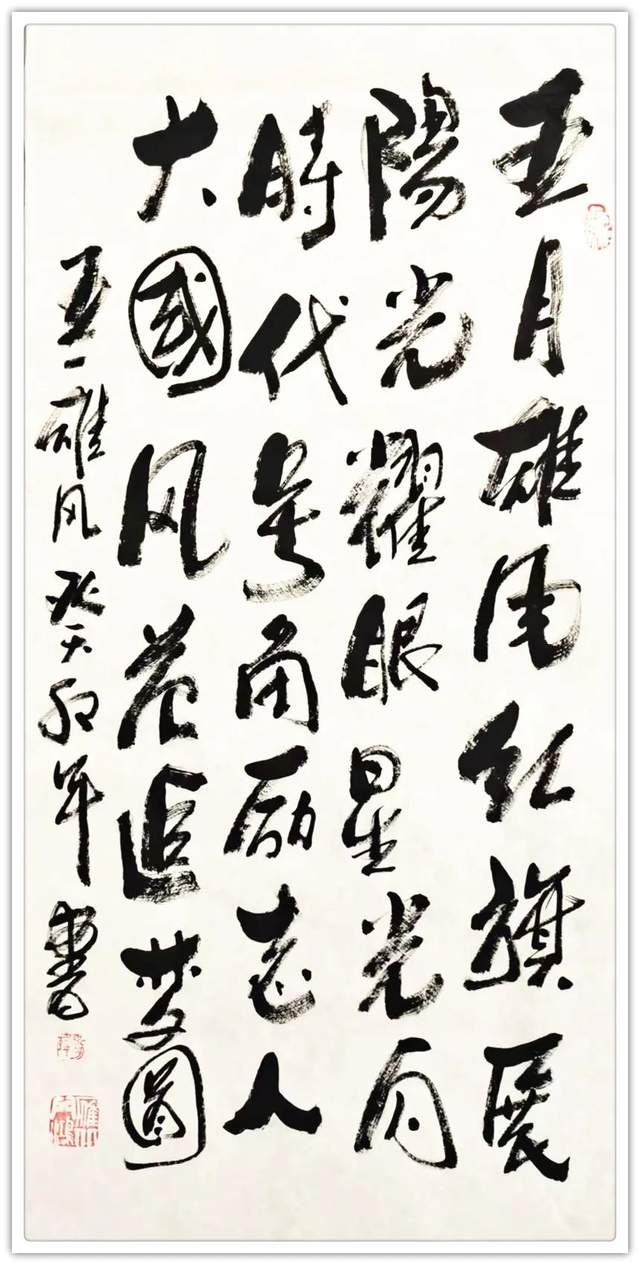 五月雄风红旗展
陽光耀眼星光
時代号角励志人
大國风范追梦圓
五一雄风癸卯年書